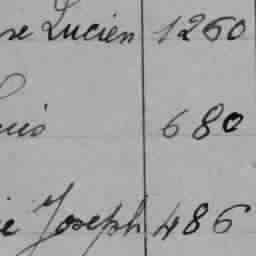 se Lucien 1260
uis 680
ie Joseph 486